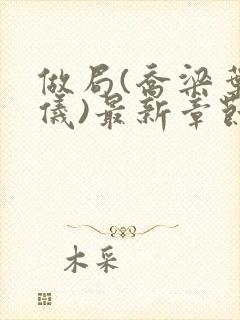 做局(乔梁叶
仪)最新章节
木采